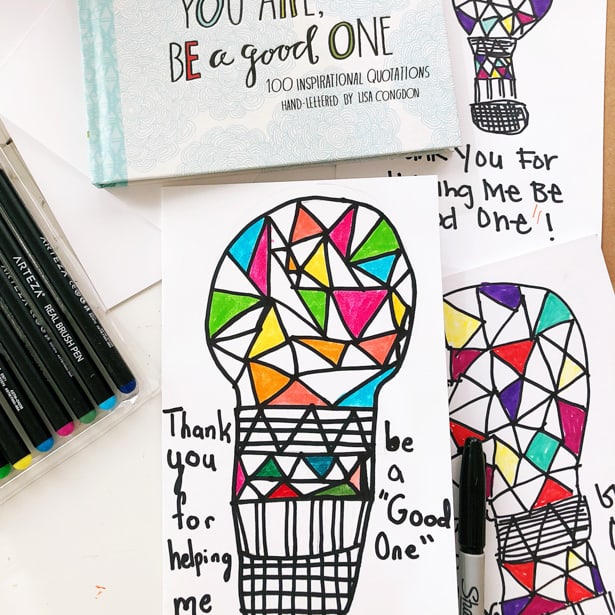 YOU ARE,
BE a good ONE
100 INSPIRATIONAL QUOTATIONS
HAND-LETTERED BY LISA CONGDON
You For
Me Be
One"!
ARTEZA
ARTEZA REAL BRUSH PEN
Thank
you
for
helping
me
be
a
"Good
One"